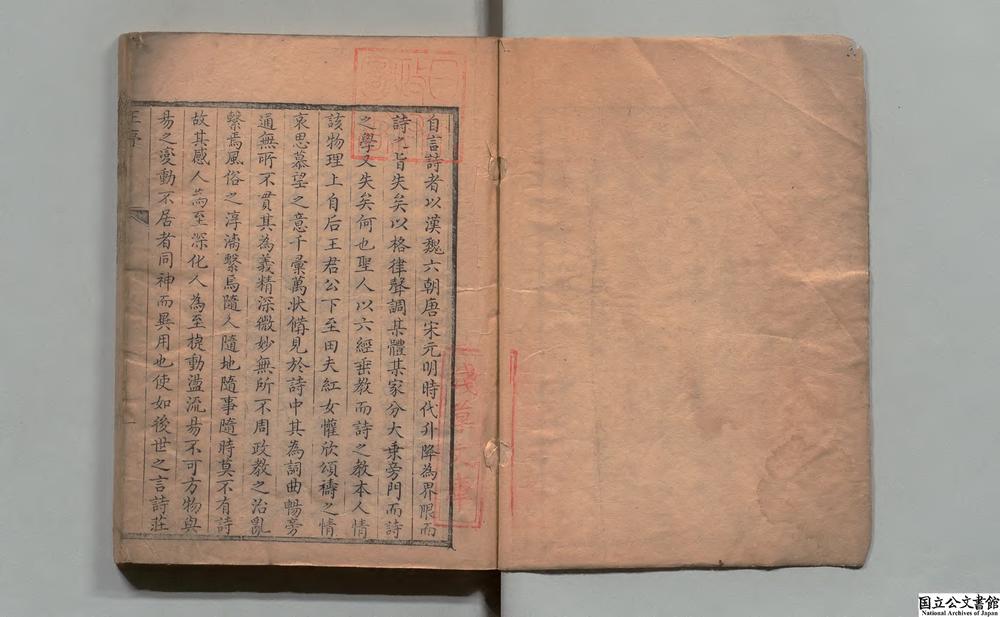 自言詩者以漢魏六朝唐宋元明時代升降為界限而
詩之旨失矣以格律聲調某體某家分大乗旁門而詩
之學又失矣何也聖人以六經垂教而詩之教本人情
該物理上自后王君公下至田夫紅女懽欣頌禱之情
哀思慕望之意千彙萬狀備見於詩中其為詞曲暢旁
通無所不貫其為義精深微妙無所不周政教之治亂
繫焉風俗之淳漓繫焉隨人隨地隨事隨時莫不有詩
故其感人耑至深化人為至㨗動盪流易不可方物與
易之變動不居者同神而異用也使如後世之言詩莊
王序
一
淺草文庫
国立公文書館
National Archives of Japan